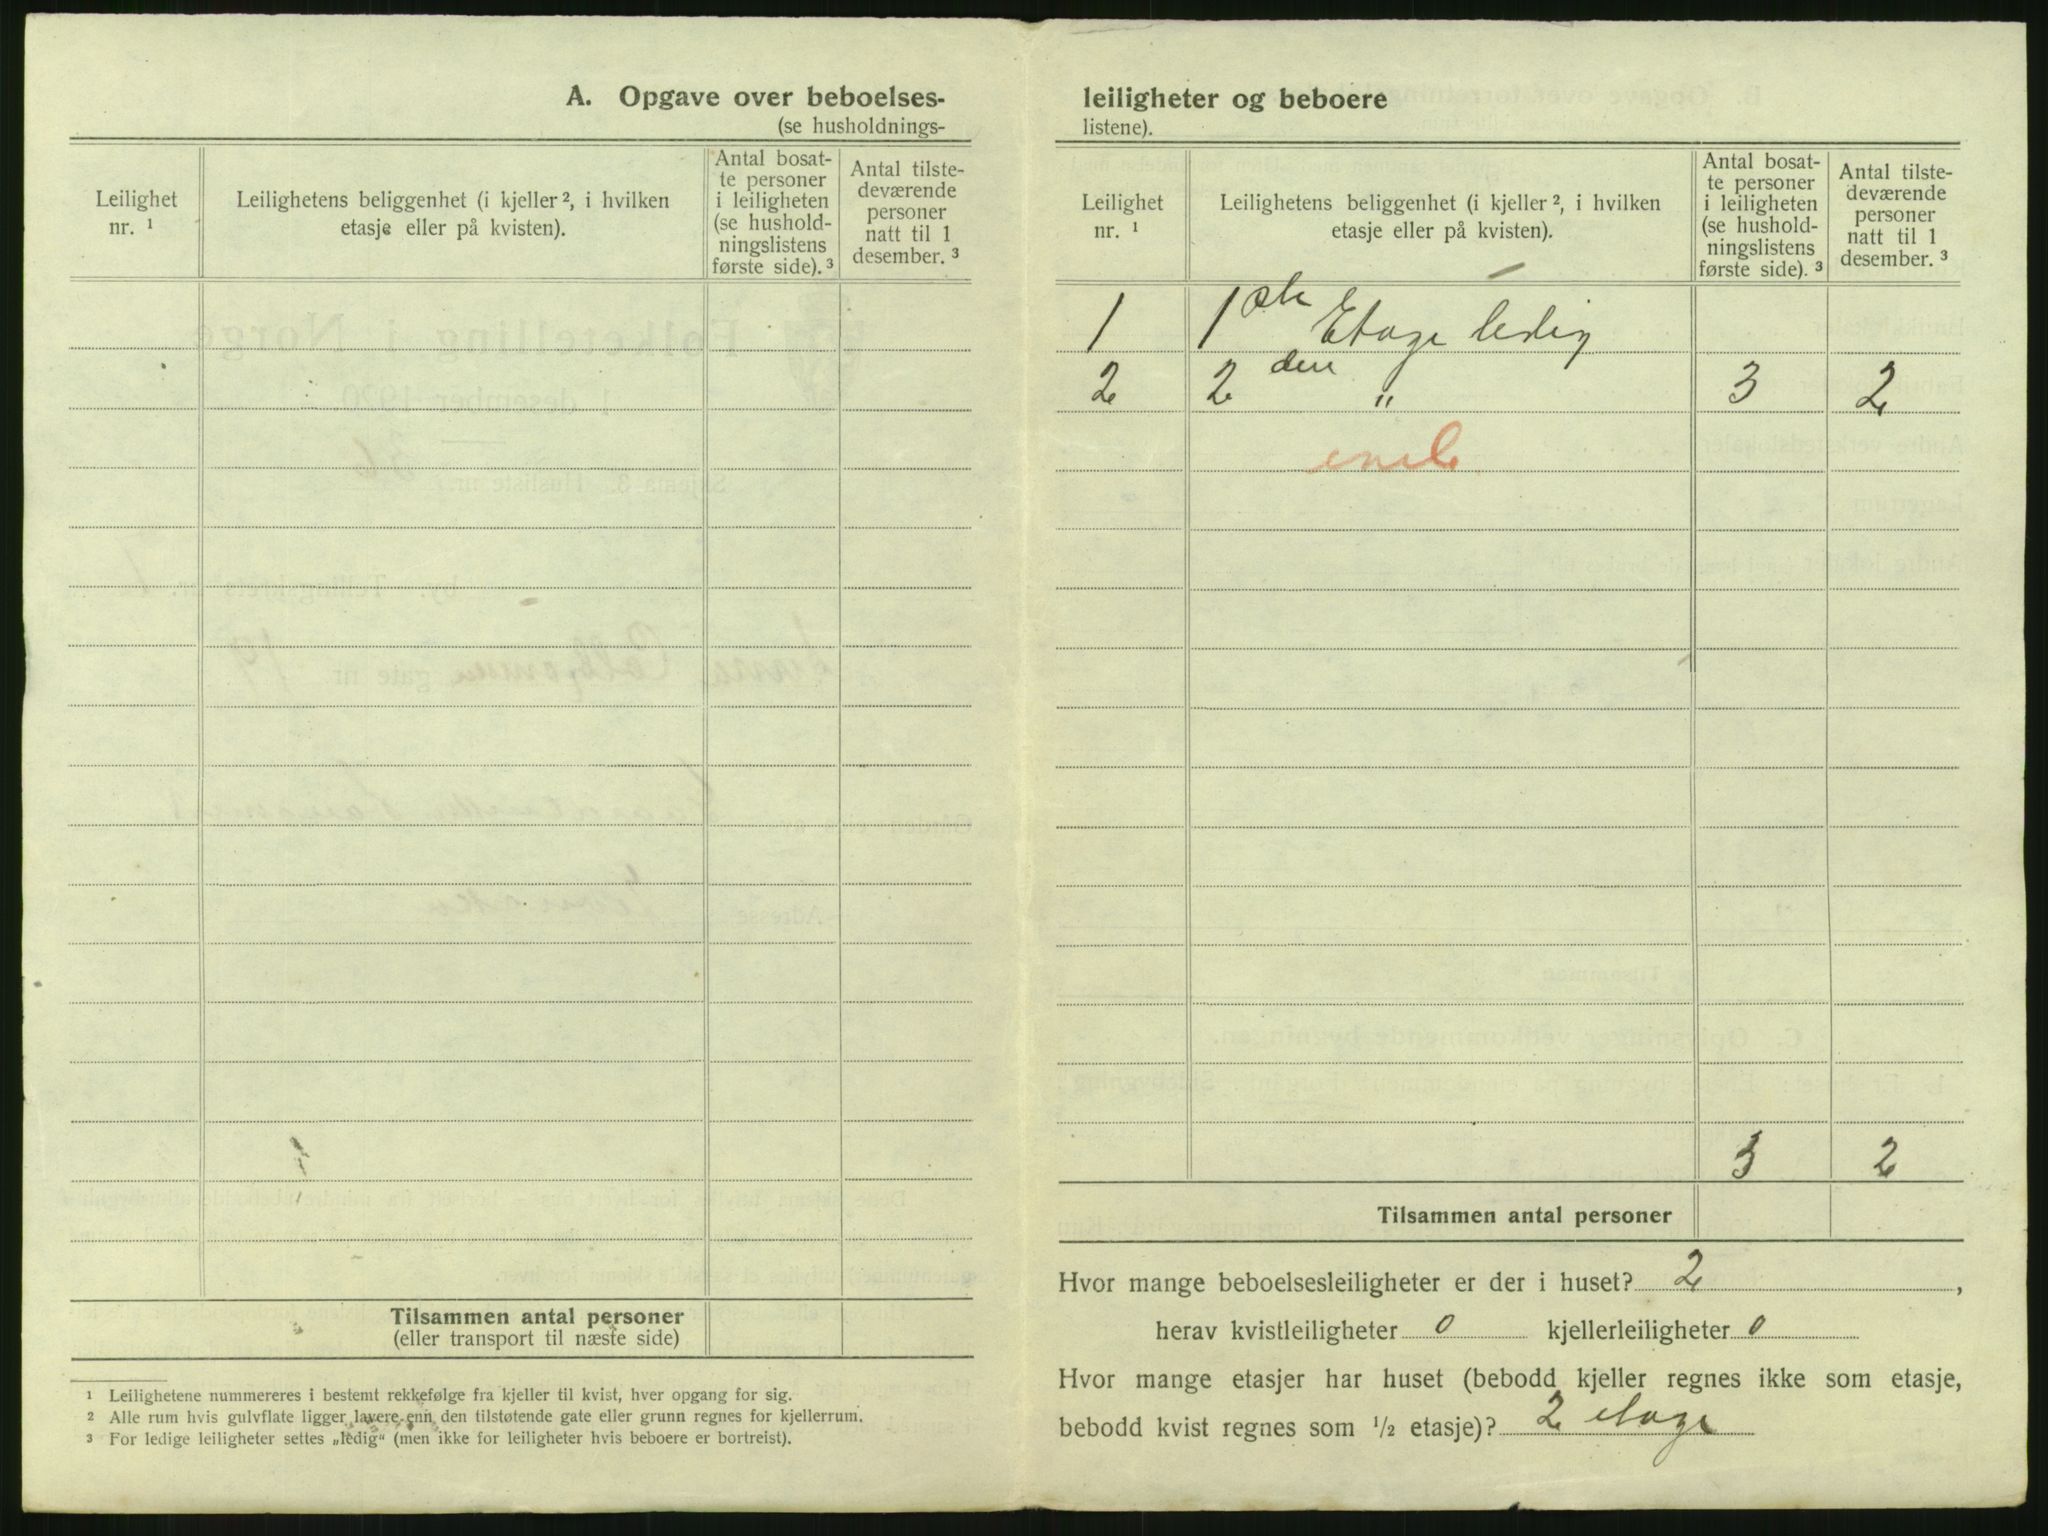 A. Opgave over beboelses-
(se husholdnings-
Leilighet
nr. ¹
Leilighetens beliggenhet (i kjeller ², i hvilken
etasje eller på kvisten).
Antal bosat-
te personer
i leiligheten
(se hushold-
ningslistens
første side). ³
Antal tilste-
deværende
personer
natt til 1
desember. ³
Tilsammen antal personer
(eller transport til næste side)
¹ Leilighetene nummereres i bestemt rekkefølge fra kjeller til kvist, hver opgang for sig.
² Alle rum hvis gulvflate ligger lavere enn den tilstøtende gate eller grunn regnes for kjellerrum.
³ For ledige leiligheter settes „ledig“ (men ikke for leiligheter hvis beboere er bortreist).
leiligheter og beboere
listene).
Leilighet
nr. ¹
Leilighetens beliggenhet (i kjeller ², i hvilken
etasje eller på kvisten).
Antal bosat-
te personer
i leiligheten
(se hushold-
ningslistens
første side). ³
Antal tilste-
deværende
personer
natt til 1
desember. ³
1 1ste Etage ledig
2 2den " 3 2
3 2
Tilsammen antal personer
Hvor mange beboelsesleiligheter er der i huset? 2,
herav kvistleiligheter 0 kjellerleiligheter 0
Hvor mange etasjer har huset (bebodd kjeller regnes ikke som etasje,
bebodd kvist regnes som ½ etasje)? 2 etage